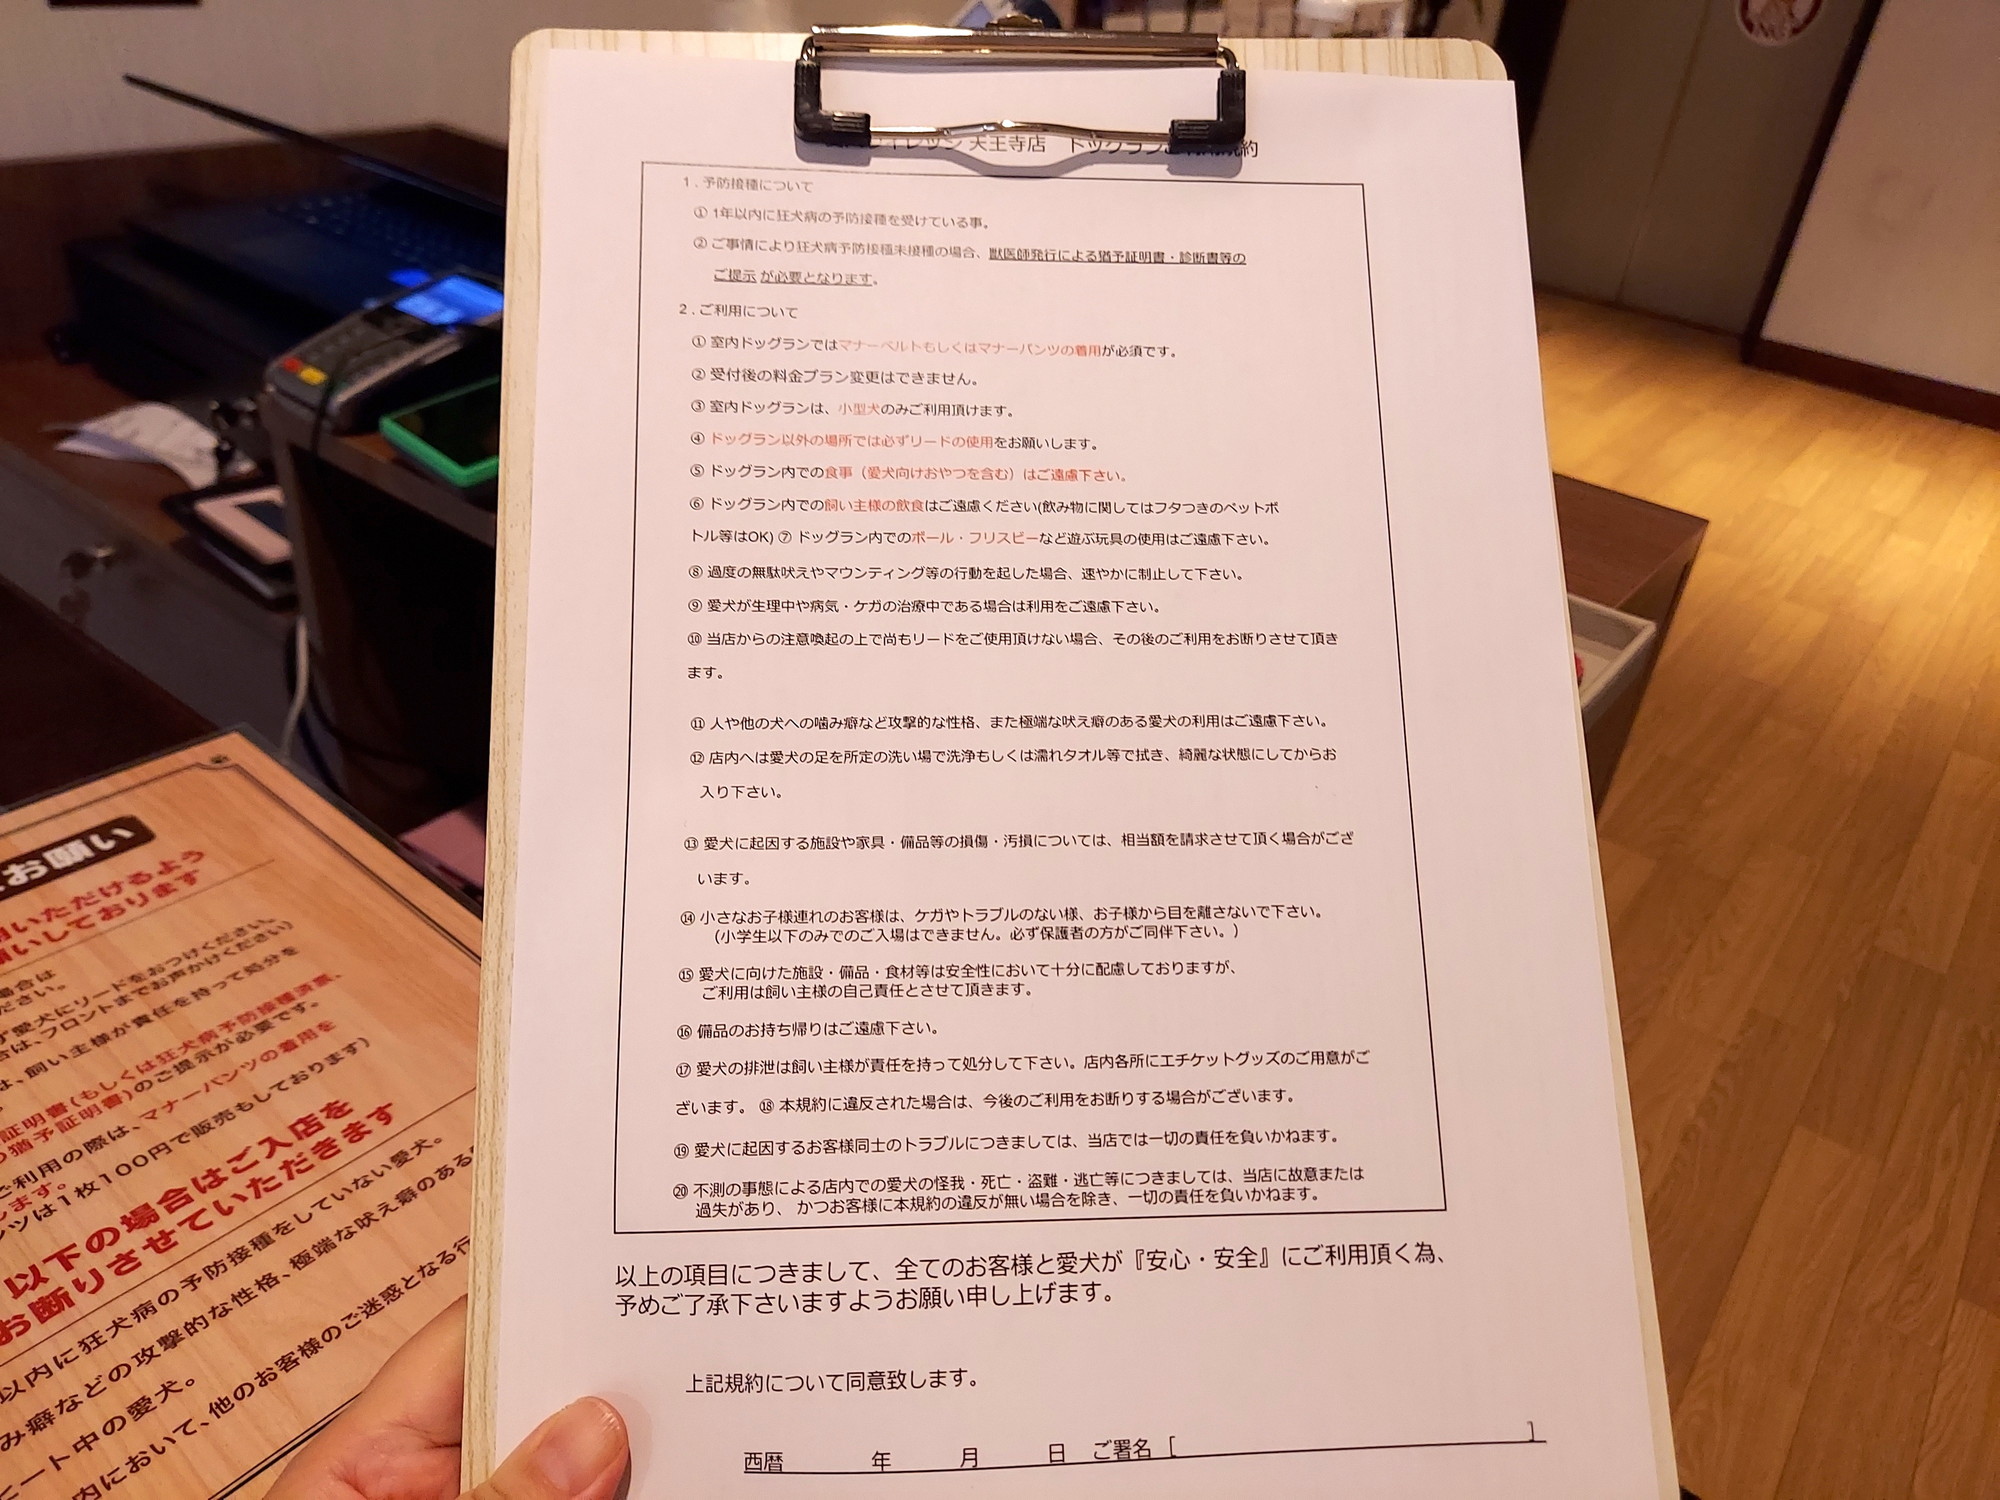 天王寺店
1．予防接種について
① 1年以内に狂犬病の予防接種を受けている事。
② ご事情により狂犬病予防接種未接種の場合、獣医師発行による猶予証明書・診断書等の
ご提示 が必要となります。
2．ご利用について
① 室内ドッグランではマナーベルトもしくはマナーパンツの着用が必須です。
② 受付後の料金プラン変更はできません。
③ 室内ドッグランは、小型犬のみご利用頂けます。
④ ドッグラン以外の場所では必ずリードの使用をお願いします。
⑤ ドッグラン内での食事（愛犬向けおやつを含む）はご遠慮下さい。
⑥ ドッグラン内での飼い主様の飲食はご遠慮ください(飲み物に関してはフタつきのペットボ
トル等はOK) ⑦ ドッグラン内でのボール・フリスビーなど遊ぶ玩具の使用はご遠慮下さい。
⑧ 過度の無駄吠えやマウンティング等の行動を起した場合、速やかに制止して下さい。
⑨ 愛犬が生理中や病気・ケガの治療中である場合は利用をご遠慮下さい。
⑩ 当店からの注意喚起の上で尚もリードをご使用頂けない場合、その後のご利用をお断りさせて頂き
ます。
⑪ 人や他の犬への噛み癖など攻撃的な性格、また極端な吠え癖のある愛犬の利用はご遠慮下さい。
⑫ 店内へは愛犬の足を所定の洗い場で洗浄もしくは濡れタオル等で拭き、綺麗な状態にしてからお
入り下さい。
⑬ 愛犬に起因する施設や家具・備品等の損傷・汚損については、相当額を請求させて頂く場合がござ
います。
⑭ 小さなお子様連れのお客様は、ケガやトラブルのない様、お子様から目を離さないで下さい。
（小学生以下のみでのご入場はできません。必ず保護者の方がご同伴下さい。）
⑮ 愛犬に向けた施設・備品・食材等は安全性において十分に配慮しておりますが、
ご利用は飼い主様の自己責任とさせて頂きます。
⑯ 備品のお持ち帰りはご遠慮下さい。
⑰ 愛犬の排泄は飼い主様が責任を持って処分して下さい。店内各所にエチケットグッズのご用意がご
ざいます。 ⑱ 本規約に違反された場合は、今後のご利用をお断りする場合がございます。
⑲ 愛犬に起因するお客様同士のトラブルにつきましては、当店では一切の責任を負いかねます。
⑳ 不測の事態による店内での愛犬の怪我・死亡・盗難・逃亡等につきましては、当店に故意または
過失があり、 かつお客様に本規約の違反が無い場合を除き、一切の責任を負いかねます。
以上の項目につきまして、全てのお客様と愛犬が『安心・安全』にご利用頂く為、
予めご了承下さいますようお願い申し上げます。
上記規約について同意致します。
西暦 年 月 日 ご署名 [ ]
お願い
いただけるよう
願いしております
場合は
ださい。
ず愛犬にリードをおつけください。
合は、フロントまでお声かけください)
は、飼い主様が責任を持って処分を
証明書(もしくは狂犬病予防接種済票、
猶予証明書)のご提示が必要です。
ご利用の際は、マナーパンツの着用を
します。
ンツは1枚100円で販売もしております)
以下の場合はご入店を
お断りさせていただきます
以内に狂犬病の予防接種をしていない愛犬。
み癖などの攻撃的な性格、極端な吠え癖のある
ヒート中の愛犬。
内において、他のお客様のご迷惑となる行